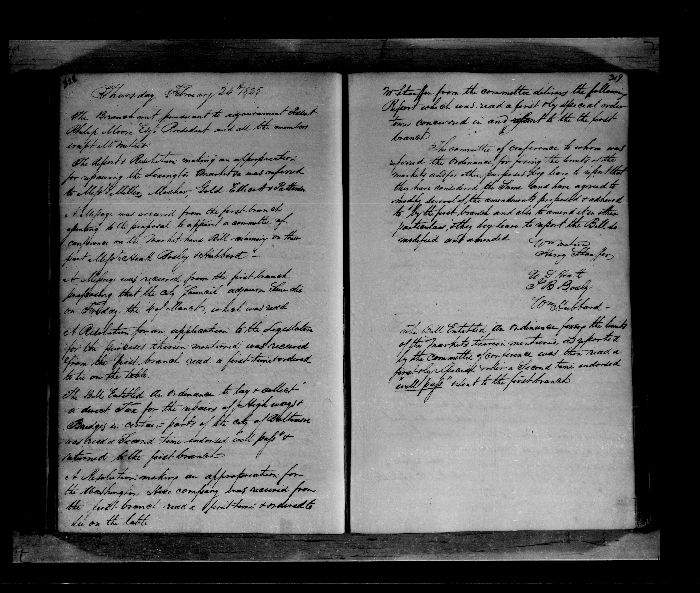 318
Thursday February 24th 1825
The Branch met pursuant to adjournment Present
Philip Moore Esqr President and all the members
except
The report & Resolution making an appropriation
for repairing the Lexington Market was referred
to Messrs Miller, Mosher, Gold
A Message was received from the first branch
agreeing to the proposal to appoint a committee of
conference on the Market house Bill naming on their
part Messrs Heath Bosley & Hubbard
A Message was received from the first branch
proposing that the City Council adjourn Sine die
on Friday the 4th March, which was read
A Resolution for an application to the Legislature
for the purposes therein mentioned was received
from the first branch read a first time & ordered
to lie on the table.
The Bill Entitled An Ordinance to lay & collect
a direct Tax for the repairs of High ways &
Bridges in certain parts of the city of Baltimore
was read a Second time endorsed "will pass" &
returned to the first branch
A Resolution making an appropriation for
the Washington Hose company was received from
the first branch read a first time & ordered to
lie on the table
319
Mr from the committee delivers the following
Report which was read a first & by special order
concurred in and sent to the first
branch
The committee of conference to whom was
referred the Ordinance for fixing the limits of the
markets and for other purposes beg leave to report that
they have considered the Same and have agreed to
modify several of the amendments proposed & adhered
to by the first branch and also to amend it in other
particulars, they beg leave to report the Bill as
modified and amended.
Wm
Henry
U. S. Heath
J. B. Bosley
Wm Hubbard
The Bill Entitled, An Ordinance fixing the limits
of the Markets therein mentioned as reported
by the committee of conference was then read a
first & by special order a Second time endorsed
"will pass" & sent to the first branch